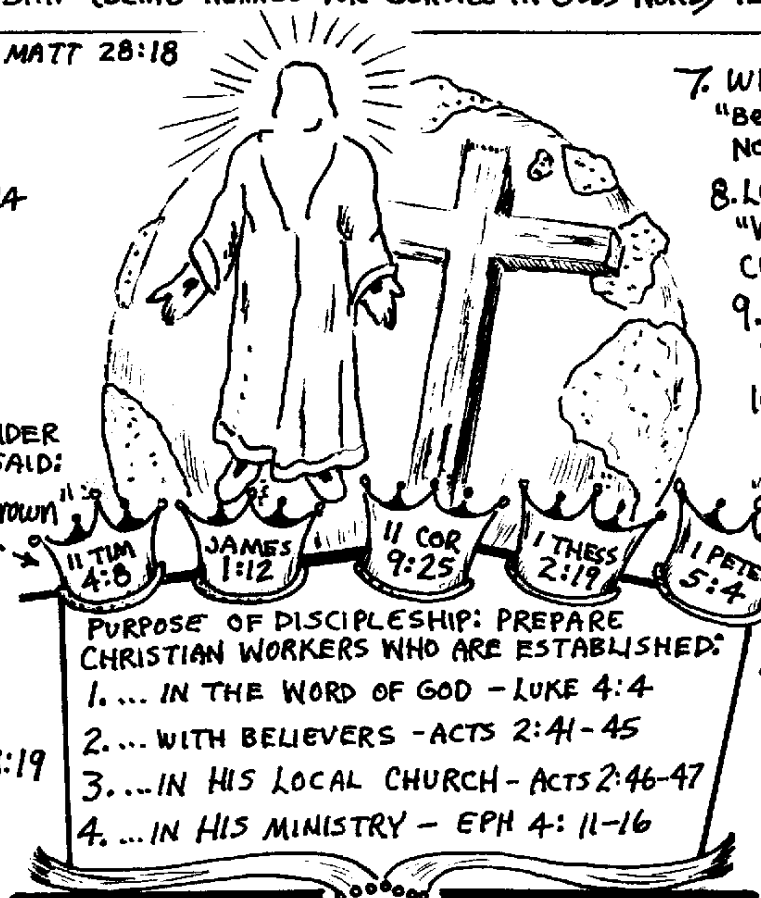 MATT 28:18
7. 
"Be
NO
8.
"
9.
SAID:
II TIM
4:8
JAMES
1:12
II COR
9:25
I THESS
2:19
I PETE
5:4
PURPOSE OF DISCIPLESHIP: PREPARE
CHRISTIAN WORKERS WHO ARE ESTABLISHED:
1. ... IN THE WORD OF GOD - LUKE 4:4
2. ... WITH BELIEVERS - ACTS 2:41-45
3. ... IN HIS LOCAL CHURCH - ACTS 2:46-47
4. ... IN HIS MINISTRY - EPH 4: 11-16
:19